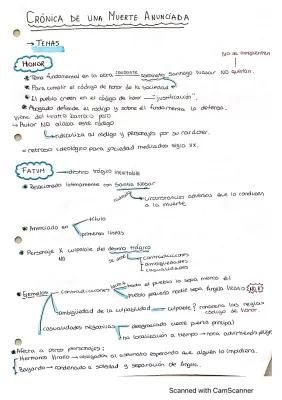 CRÓNICA DE UNA MUERTE ANUNCIADA
→ TEMAS
NO se arrepienten
HONOR
Tema fundamental en la obra asesinato Santiago Nasar NO querían.
Para cumplir el código de honor de la sociedad
El pueblo creen en el código de honor → "justificación".
Abogado defiende el código y sobre él fundamenta la defensa.
Viene del teatro barroco pero
→ Autor NO alaba este código
ridiculiza al código y personajes por su carácter.
= retroceso ideológico para sociedad mediados siglo XX.
FATUM
destino trágico inevitable
Relacionado íntimamente con Santiago Nasar
circunstancias adversas que lo conducen
a la muerte
título
Anunciado en
primeras líneas
Personaje X culpable del destino trágico
NO
se debe
contradicciones
ambigüedades
casualidades
Ejemplos
contradicciones
todo el pueblo lo sabía menos él
mucho pueblo nadie sabía Ángela
ambigüedad de la culpabilidad culpable? conocía las reglas
código de honor.
casualidades negativas
desgraciado (suele puerta principal)
no localización a tiempo → nota advirtiendo
Afecta a otros personajes:
Hermanos Vicario → obligados al asesinato esperando que alguien lo impidiera.
Bayardo → condenado a soledad y separación de Ángela.
Scanned with CamScanner